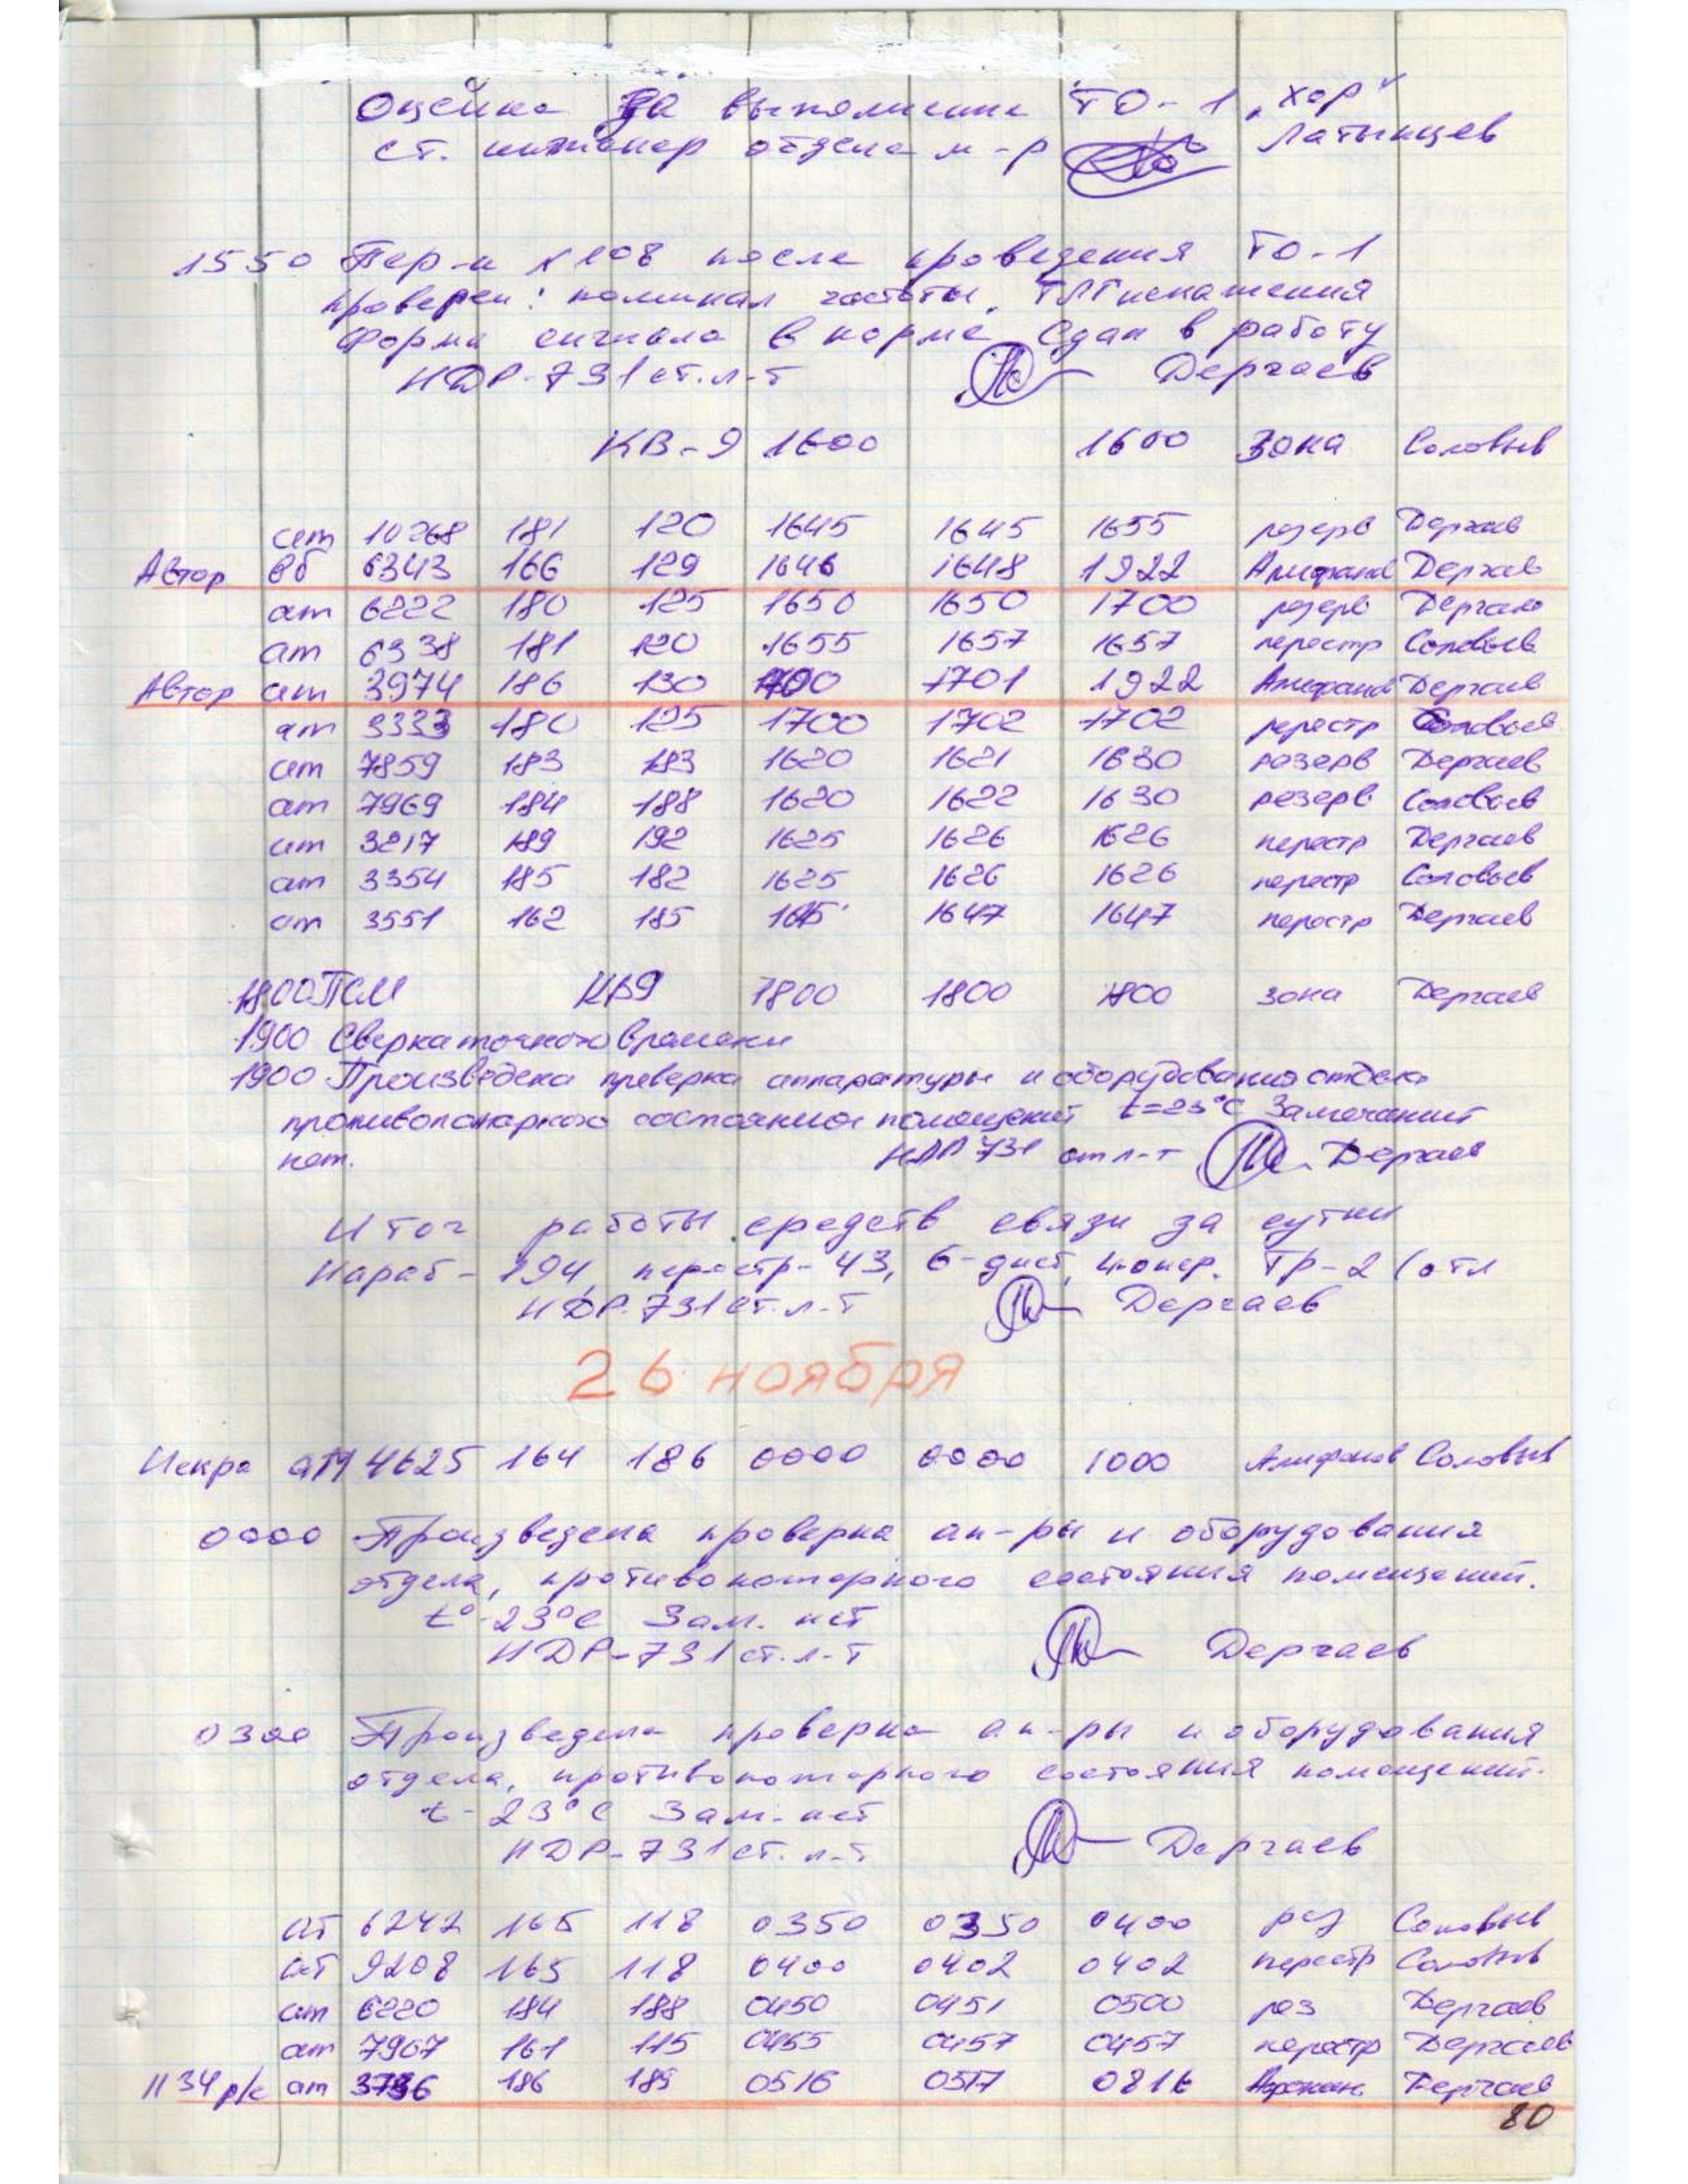 Оценка за выполнение ТО-1 „хор"
ст. инженер отдела м-р Латынцев
1550 Пер-к № 108 после проведения ТО-1
проверен: номинал частоты, ТЛГ искажения
Форма сигнала в норме Сдан в работу
НДР-731 ст.л-т Дергаев
КВ-9 1600 1600 Зона Соловьев
ат 10268 181 120 1645 1645 1655 резерв Дергаев
Автор вб 6343 166 129 1646 1648 1922 Алифанов Дергаев
ат 6222 180 125 1650 1650 1700 резерв Дергаев
ат 6338 181 120 1655 1657 1657 перестр Соловьев
Автор ат 3974 186 130 1700 1701 1922 Алифанов Дергаев
ат 3333 180 125 1700 1702 1702 перестр Соловьев
ат 7859 183 183 1620 1621 1630 резерв Дергаев
ат 7969 184 188 1620 1622 1630 резерв Соловьев
ат 3217 189 192 1625 1626 1626 перестр Дергаев
ат 3354 185 182 1625 1626 1626 перестр Соловьев
ат 3551 162 185 1647 1647 перестр Дергаев
1800 ПСМ КВ9 1800 1800 1800 зона Дергаев
1900 Сверка точного времени
1900 Произведена проверка аппаратуры и оборудования отдела
противопожарного состояния помещений t=23°С Замечаний
нет. НДР 731 ст л-т Дергаев
Итог работы средств связи за сутки
Нараб - 194, перестр - 43, 6-дист, 4-опер. ТР-2 (отл
НДР-731 ст.л-т Дергаев
26 ноября
Искра ат 4625 164 186 0000 0000 1000 Алифанов Соловьев
0000 Произведена проверка ап-ры и оборудования
отдела, противопожарного состояния помещений.
t°-23°С Зам. нет
НДР-731 ст.л-т Дергаев
0300 Произведена проверка ап-ры и оборудования
отдела, противопожарного состояния помещений.
t-23°С Зам. нет
НДР-731 ст.л-т Дергаев
ат 6242 165 118 0350 0350 0400 рез Соловьев
ат 9208 165 118 0400 0402 0402 перестр Соловьев
ат 6220 184 188 0450 0451 0500 рез Дергаев
ат 7967 161 115 0455 0457 0457 перестр Дергаев
1134 р/с ат 186 189 0516 0517 0816 Дергаев
80